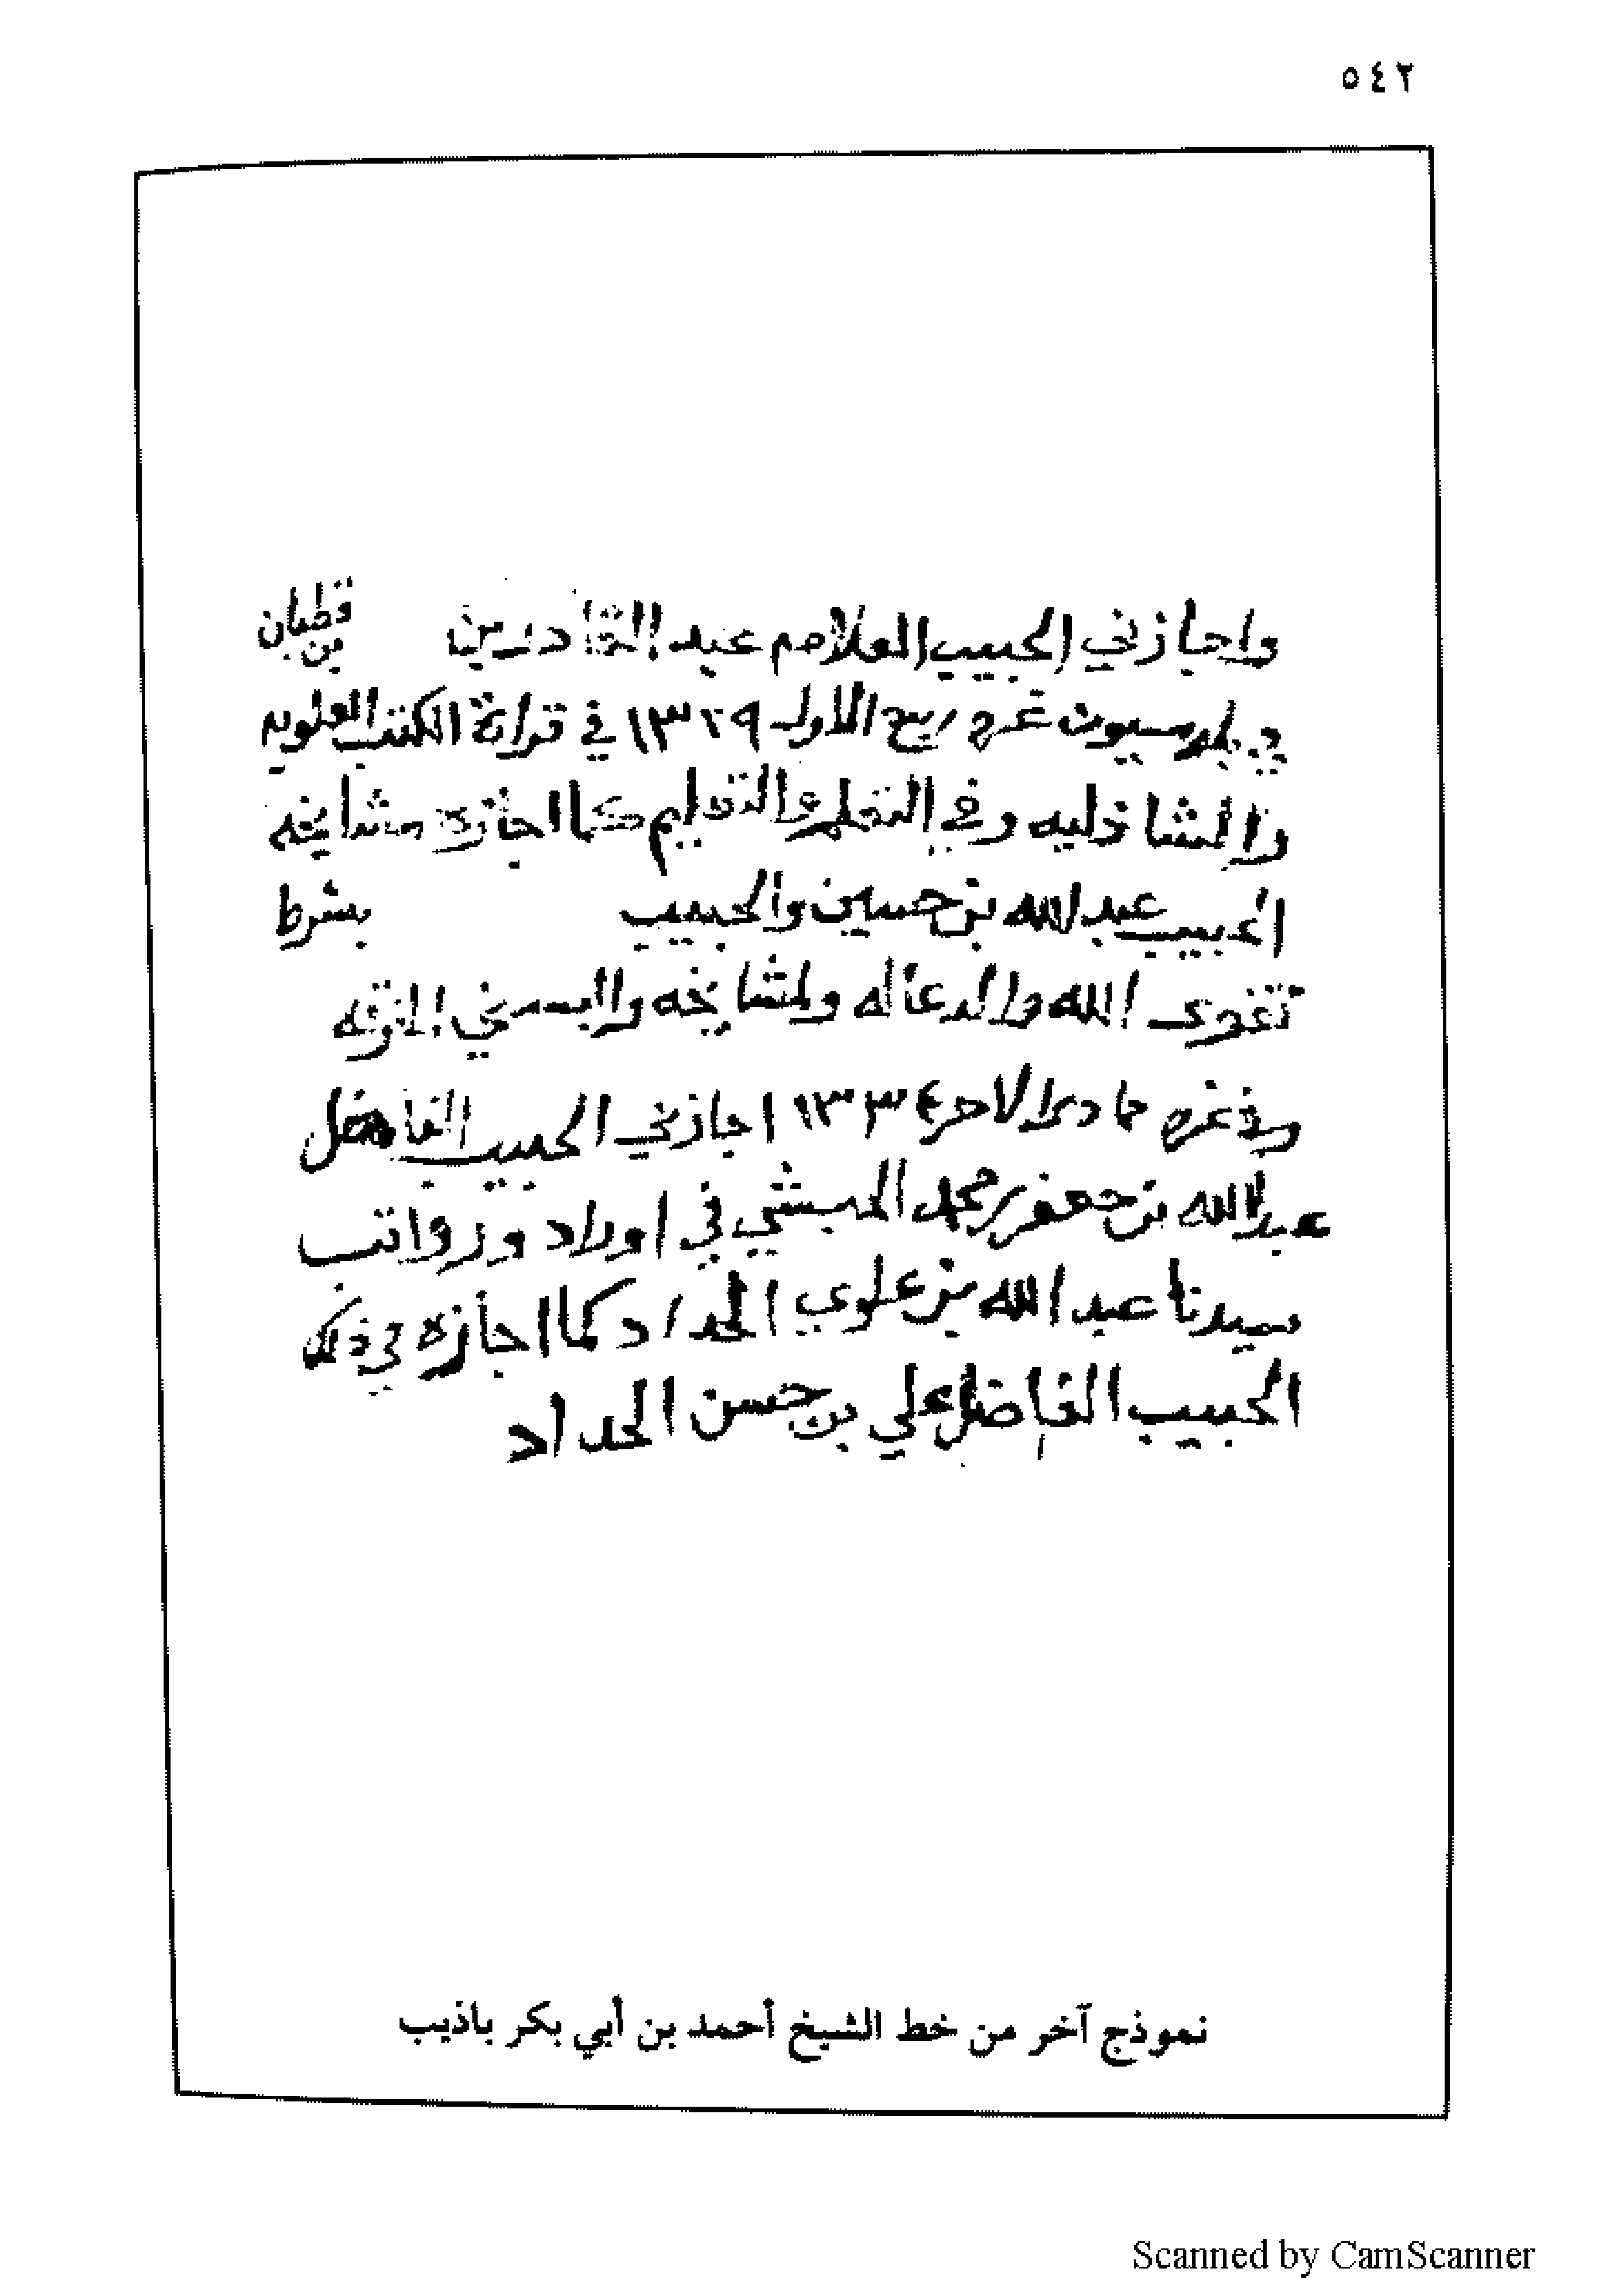 ٥٤٢
واجازني الحبيب العلامه عبد القادر بن قطبان
بن
في بلد سيون غره ربيع الاول ١٣٢٩ في قرائة الكتب العلويه
والشاذليه وفي التعلم والتعليم كما اجازه مشايخه
الحبيب عبد الله بن حسين والحبيب بشرط
تقوى الله والدعا له ولمشايخه والبسني الخرقه
وفي غره جماد الاخر ١٣٣٤ اجازني الحبيب الفاضل
عبد الله بن جعفر بن محمد الحبشي في اوراد ورواتب
سيدنا عبد الله بن علوي الحداد كما اجازه في ذلك
الحبيب الفاضل علي بن حسن الحداد
نموذج آخر من خط الشيخ أحمد بن أبي بكر باذيب
Scanned by CamScanner